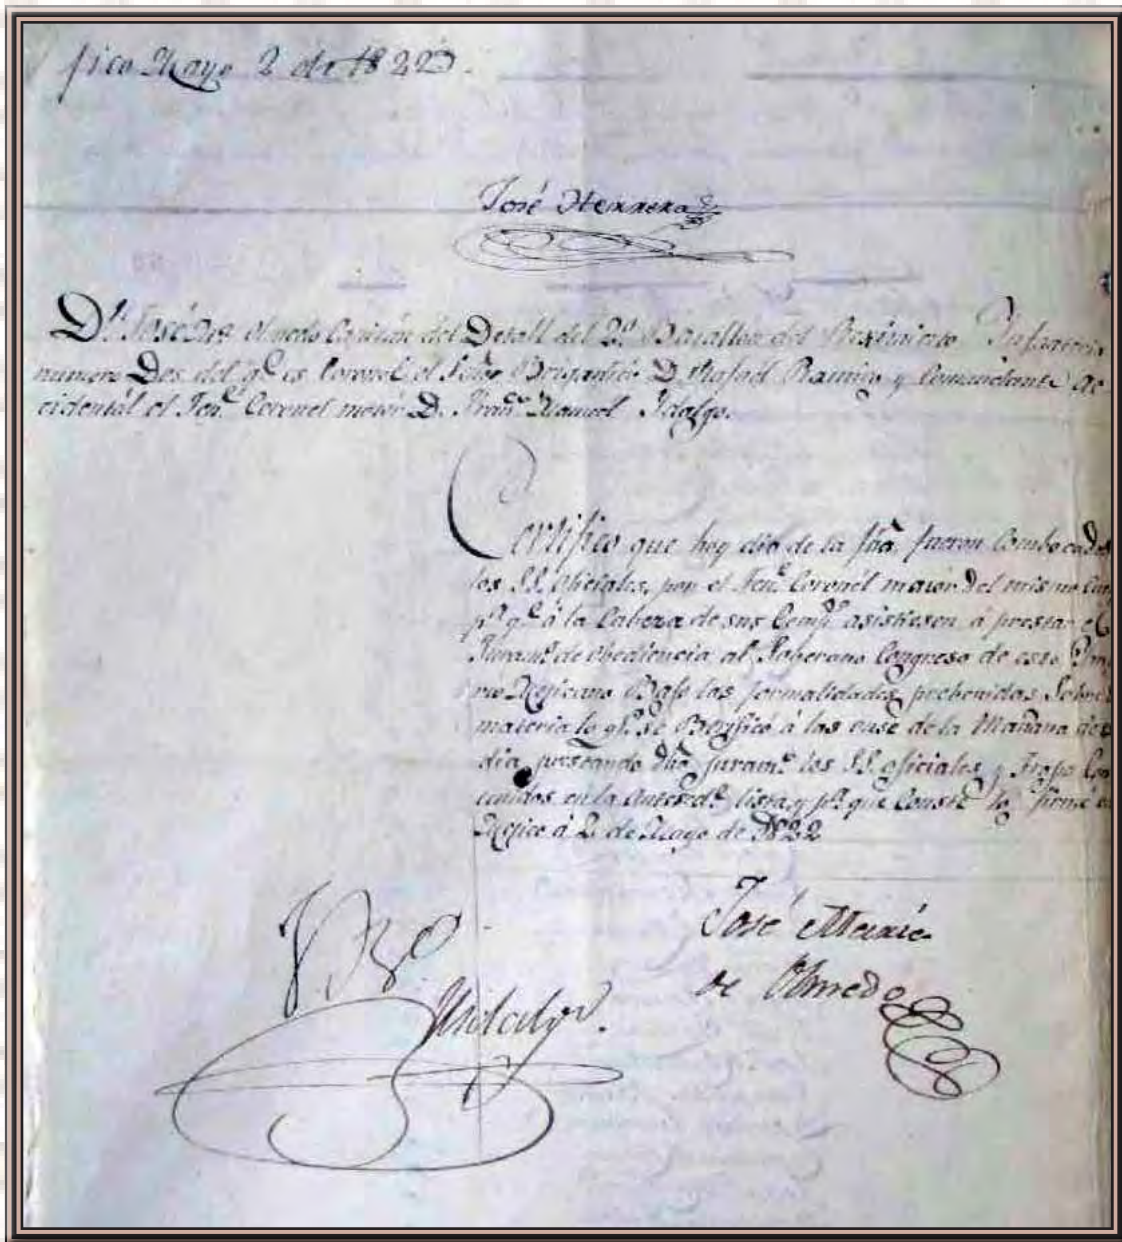 jico Mayo 2 de 1822.
José Herrera
Dn. José Ma. Olmedo Capitán del Detall del 2º Batallon del Reximiento Infanteria
numero Dos del qe. es Coronel el Señor Brigadier D. Rafael Ramiro y Comandante Ac-
cidental el Tente. Coronel mayor D. Fran.co Manuel Idalgo.
Certifico que hoy dia de la fha. fueron Combocados
los SS. Oficiales, por el Tente. Coronél maior del mismo
pa. qe. á la Cabeza de sus Comps. asistiesen á prestar el
Juramto. de obediencia al Soberano Congreso de este
Mejicano Bajo las formalidades prebenidas Sobre
materia lo qe. se Berificó á las onse de la Mañana de
dia, prestando dho. juramto. los SS. oficiales y Tropa
en la Antesede. lista, y pa. que Conste lo firmé en
Mejico á 2 de Mayo de 1822
José Maria
de Olmedo
Vo Bo
Hidalgo.